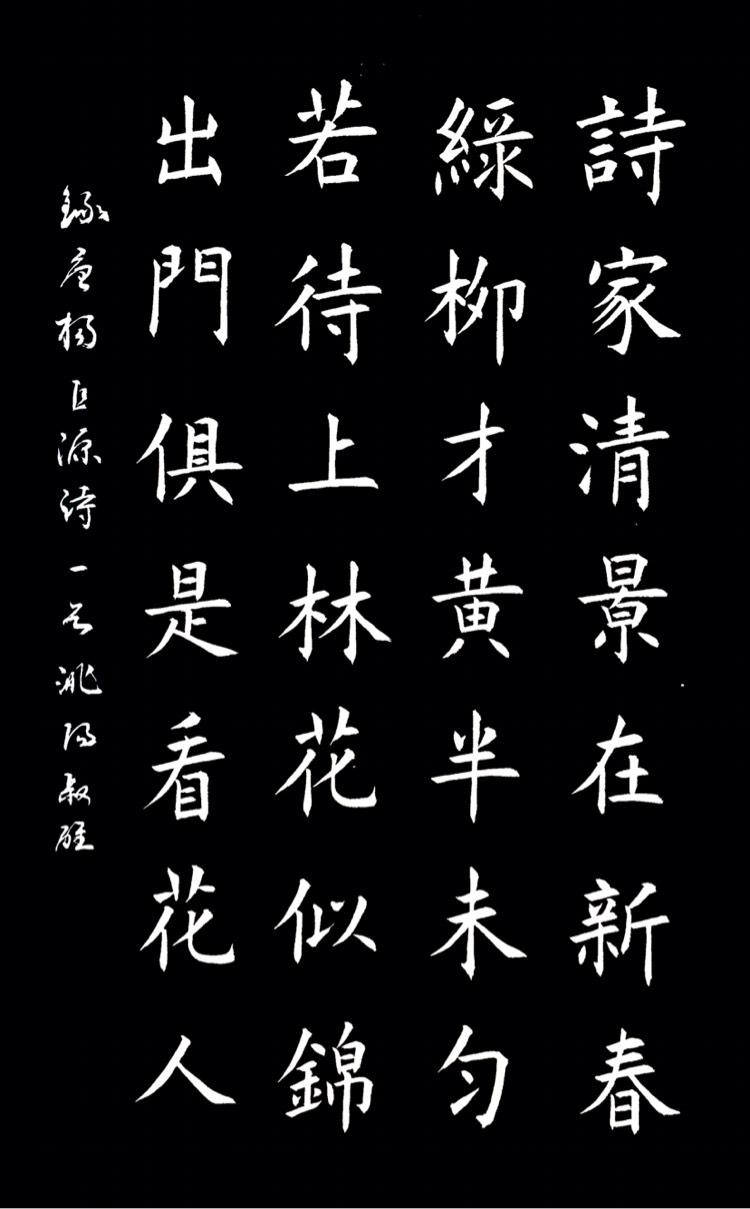 詩家清景在新春
綠柳才黄半未匀
若待上林花似錦
出門俱是看花人
錄唐楊巨源诗一首洮陽叔